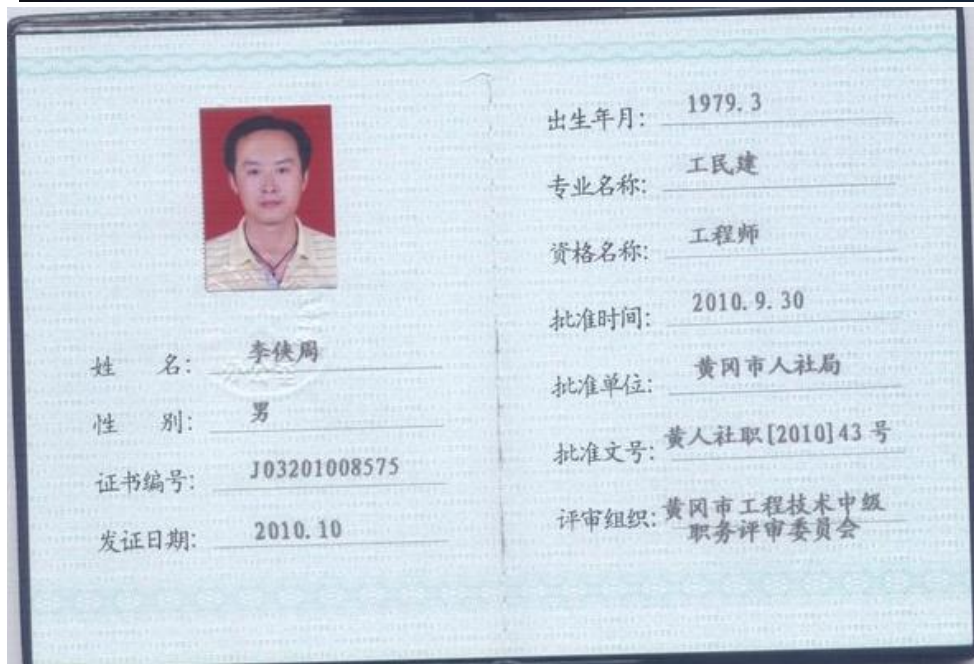 姓 名: 李侠周
性 别: 男
证书编号: J03201008575
发证日期: 2010. 10
出生年月: 1979. 3
专业名称: 工民建
资格名称: 工程师
批准时间: 2010. 9. 30
批准单位: 黄冈市人社局
批准文号: 黄人社职[2010]43 号
评审组织: 黄冈市工程技术中级
职务评审委员会